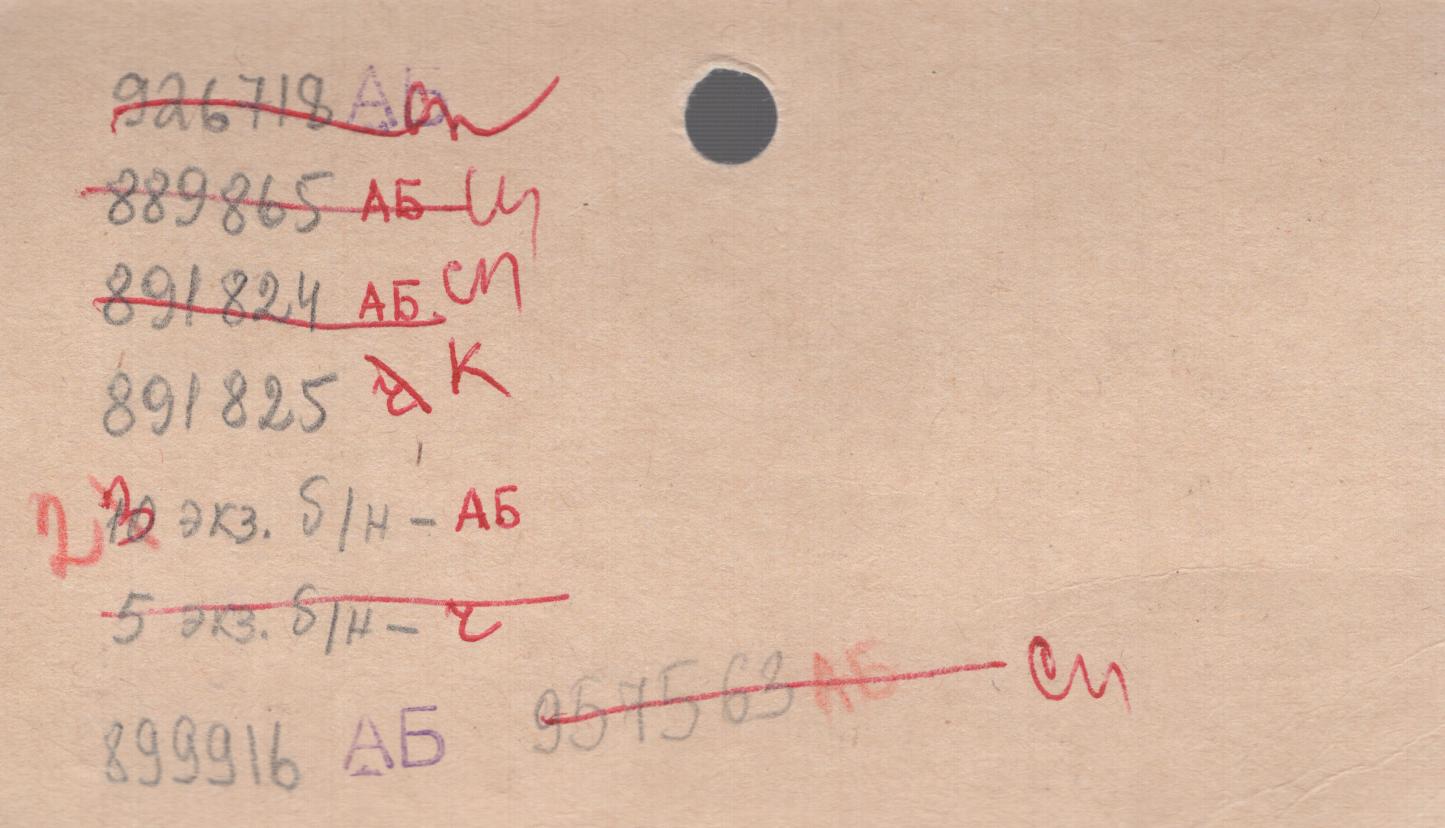 926718 АБ сп
889865 АБ сп
891824 АБ сп
891825 ч К
экз. б/н - АБ
5 экз. б/н - ч
957563 АБ сп
899916 АБ